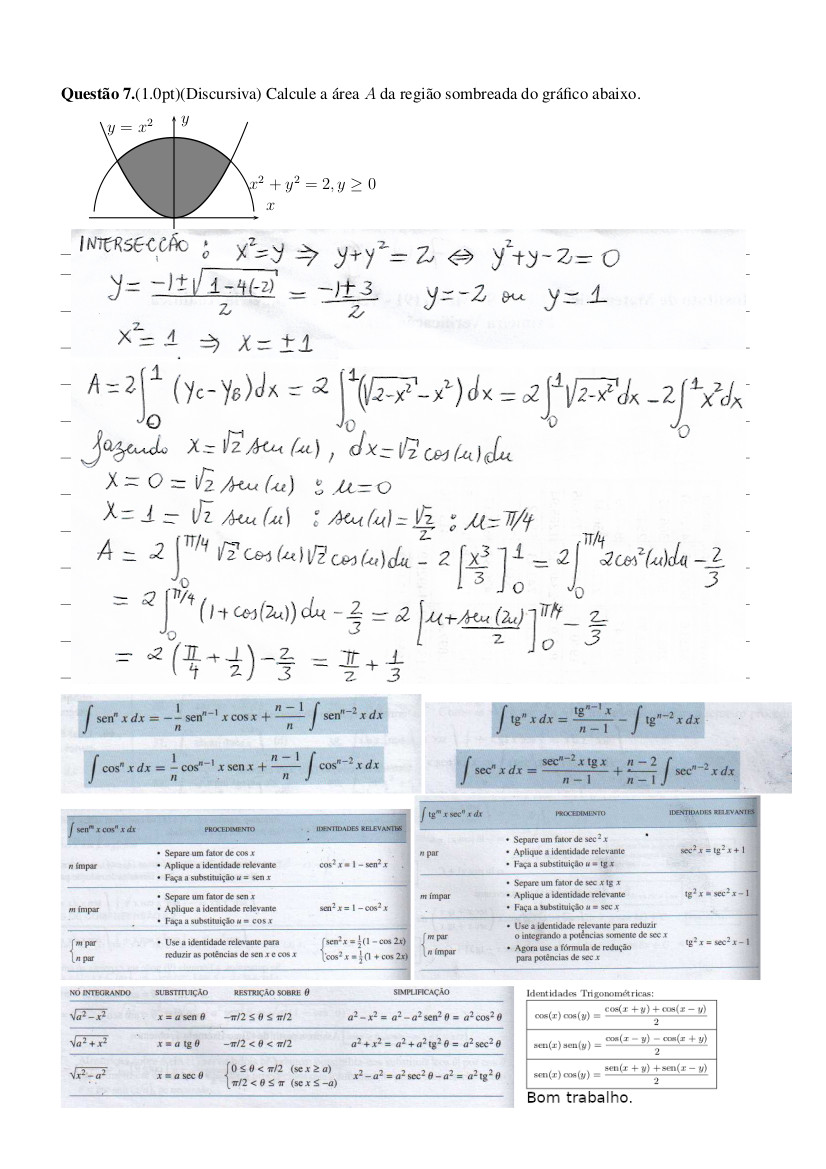 Questão 7.(1.0pt)(Discursiva) Calcule a área A da região sombreada do gráfico abaixo.
y = x² y
x² + y² = 2, y ≥ 0
x
INTERSECCÃO : x²=y ⇒ y+y²=2 ⇔ y²+y-2=0
y = (-1±√(1-4(-2)))/2 = (-1±3)/2 y=-2 ou y=1
x²=1 ⇒ x=±1
A = 2∫₀¹ (y_C-y_B)dx = 2∫₀¹ (√(2-x²)-x²)dx = 2∫₀¹ √(2-x²)dx - 2∫₀¹ x²dx
fazendo x=√2 sen(u), dx=√2 cos(u)du
x=0=√2 sen(u) : u=0
x=1=√2 sen(u) : sen(u)=√2/2 : u=π/4
A = 2∫₀^(π/4) √2 cos(u)√2 cos(u)du - 2[x³/3]₀¹ = 2∫₀^(π/4) 2cos²(u)du - 2/3
= 2∫₀^(π/4) (1+cos(2u))du - 2/3 = 2[u+sen(2u)/2]₀^(π/4) - 2/3
= 2(π/4+1/2)-2/3 = π/2+1/3
∫ senⁿ x dx = -1/n senⁿ⁻¹ x cos x + (n-1)/n ∫ senⁿ⁻² x dx
∫ cosⁿ x dx = 1/n cosⁿ⁻¹ x sen x + (n-1)/n ∫ cosⁿ⁻² x dx
∫ tgⁿ x dx = tgⁿ⁻¹ x/(n-1) - ∫ tgⁿ⁻² x dx
∫ secⁿ x dx = secⁿ⁻² x tg x/(n-1) + (n-2)/(n-1) ∫ secⁿ⁻² x dx
∫ senᵐ x cosⁿ x dx PROCEDIMENTO IDENTIDADES RELEVANTES
n ímpar
• Separe um fator de cos x
• Aplique a identidade relevante cos² x = 1 - sen² x
• Faça a substituição u = sen x
m ímpar
• Separe um fator de sen x
• Aplique a identidade relevante sen² x = 1 - cos² x
• Faça a substituição u = cos x
{m par
n par
• Use a identidade relevante para
reduzir as potências de sen x e cos x
{sen² x = ½(1 - cos 2x)
cos² x = ½(1 + cos 2x)
∫ tgᵐ x secⁿ x dx PROCEDIMENTO IDENTIDADES RELEVANTES
n par
• Separe um fator de sec² x
• Aplique a identidade relevante sec² x = tg² x + 1
• Faça a substituição u = tg x
m ímpar
• Separe um fator de sec x tg x
• Aplique a identidade relevante tg² x = sec² x - 1
• Faça a substituição u = sec x
{m par
n ímpar
• Use a identidade relevante para reduzir
o integrando a potências somente de sec x
• Agora use a fórmula de redução
para potências de sec x
tg² x = sec² x - 1
NO INTEGRANDO SUBSTITUIÇÃO RESTRIÇÃO SOBRE θ SIMPLIFICAÇÃO
√(a² - x²) x = a sen θ -π/2 ≤ θ ≤ π/2 a² - x² = a² - a² sen² θ = a² cos² θ
√(a² + x²) x = a tg θ -π/2 < θ < π/2 a² + x² = a² + a² tg² θ = a² sec² θ
√(x² - a²) x = a sec θ {0 ≤ θ < π/2 (se x ≥ a)
π/2 < θ ≤ π (se x ≤ -a) x² - a² = a² sec² θ - a² = a² tg² θ
Identidades Trigonométricas:
cos(x) cos(y) = (cos(x + y) + cos(x - y))/2
sen(x) sen(y) = (cos(x - y) - cos(x + y))/2
sen(x) cos(y) = (sen(x + y) + sen(x - y))/2
Bom trabalho.